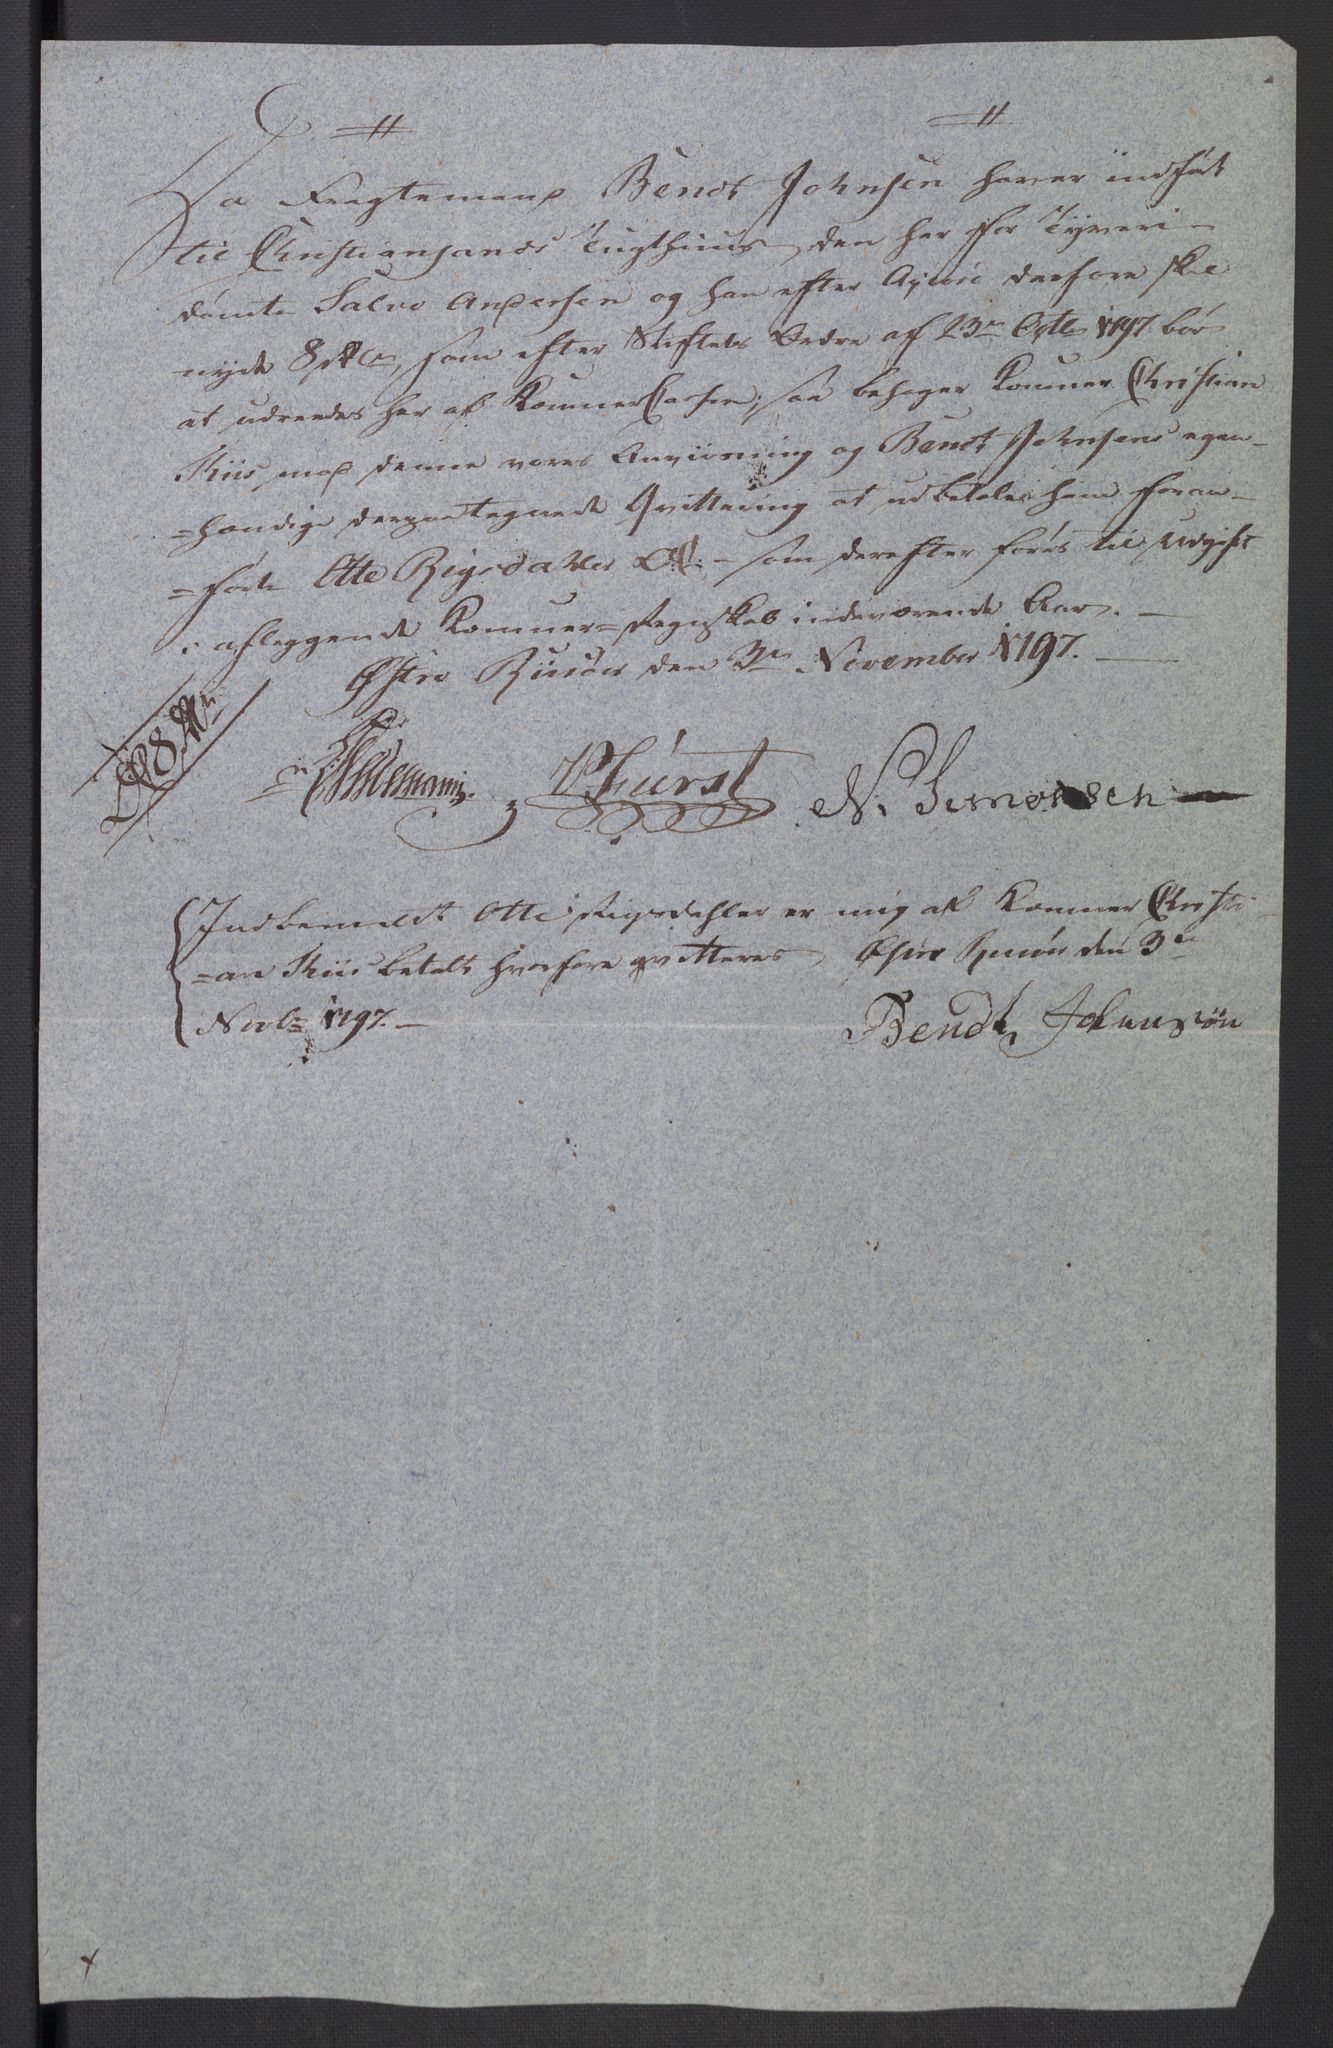 Da Fragtemand Bendt Johnsen haver indført
til Christiansands Tugthuus den her for Tyveri
dømte Salve Andersen og han efter derfore skal
nyde 8 rdlr, som efter Stiftets Ordre af 23de Octb 1797 bør
at udreedes her af KæmnerCassen; saa behager Kæmner Christian
Kiis mod denne vores Anviisning og Bendt Johnsens egen-
=hændige derpaa tegnede Qvittering at udbetale ham foran-
=førte Otte Rigsdaler som derefter føres til Udgift
i aflæggende Kæmner=Regnskab indeværende Aar. —
Østre Riisøer den 3de November 1797. —
8 rd
N. Simonsen
Indbemeldt Otte Rigsdahler er mig af Kæmner Christi
=an Kiis betalt hvorfore qvitteres Østre Riisøer den 3de
Novbr 1797. —
Bendt Johnnsøn